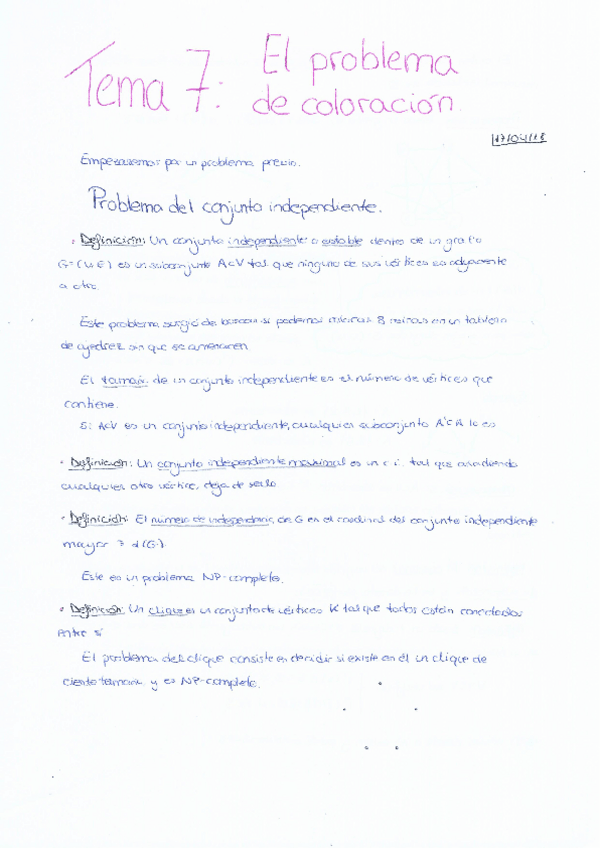 Tema 7: El problema
de coloración.
17/04/18
Empezaremos por un problema previo.
Problema del conjunto independiente.
· Definición: Un conjunto independiente o estable dentro de un grafo
G=(V,E) es un subconjunto A⊂V tal que ninguno de sus vértices es adyacente
a otro.
Este problema surgió de buscar si podemos colocar 8 reinas en un tablero
de ajedrez sin que se amenacen
El tamaño de un conjunto independiente es el número de vértices que
contiene.
Si A⊂V es un conjunto independiente, cualquier subconjunto A'⊂A lo es
· Definición: Un conjunto independiente maximal es un c.i. tal que añadiendo
cualquier otro vértice, deja de serlo
· Definición: El número de independencia de G es el cardinal del conjunto independiente
mayor α(G)
Este es un problema NP-completo.
· Definición: Un clique es un conjunto de vértices K tal que todos están conectados
entre sí
El problema del clique consiste en decidir si existe en él un clique de
cierto tamaño y es NP-completo.